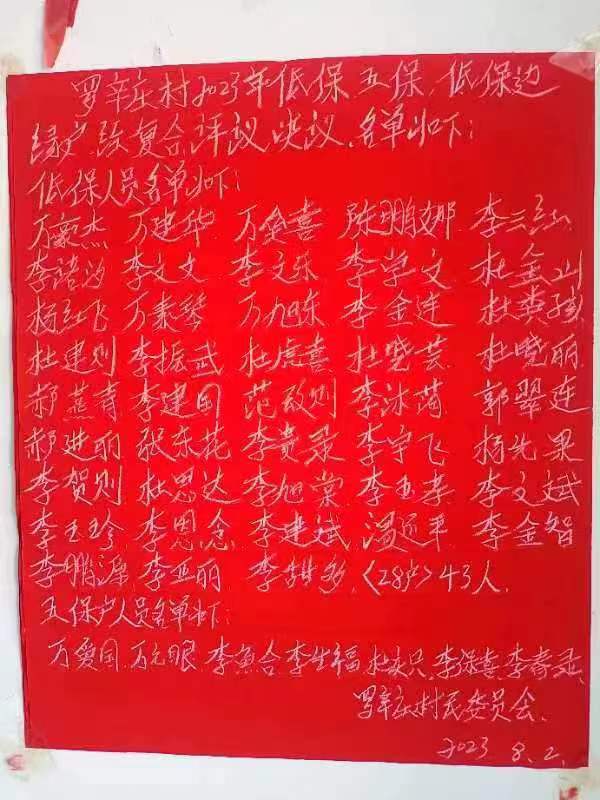 罗辛庄村2023年低保 五保、低保边
缘户 经复合评议决议、名单如下:
低保人员名单如下:
万豪杰 万建华 万贪喜 陈鹏娜 李三红
李浩 李文文 李文东 李学文 杜金山
杨红飞 万素琴 万旭东 李金连 杜英孩
杜建则 李振武 杜虎喜 杜晓芸 杜晓丽
郝燕青 李建国 范改则 李沐茵 郭翠连
郝进丽 张东花 李贵录 李宇飞 杨先果
李贺则 杜思达 李旭棠 李玉孝 李文斌
李玉珍 李思念 李建斌 李金智
李鹏源 李亚丽 李甜多 〈28户〉43人.
五保户人员名单如下:
万爱国 万元眼 李鱼合 李生福 李保喜 李春录
罗辛庄村民委员会.
2023 8.2.